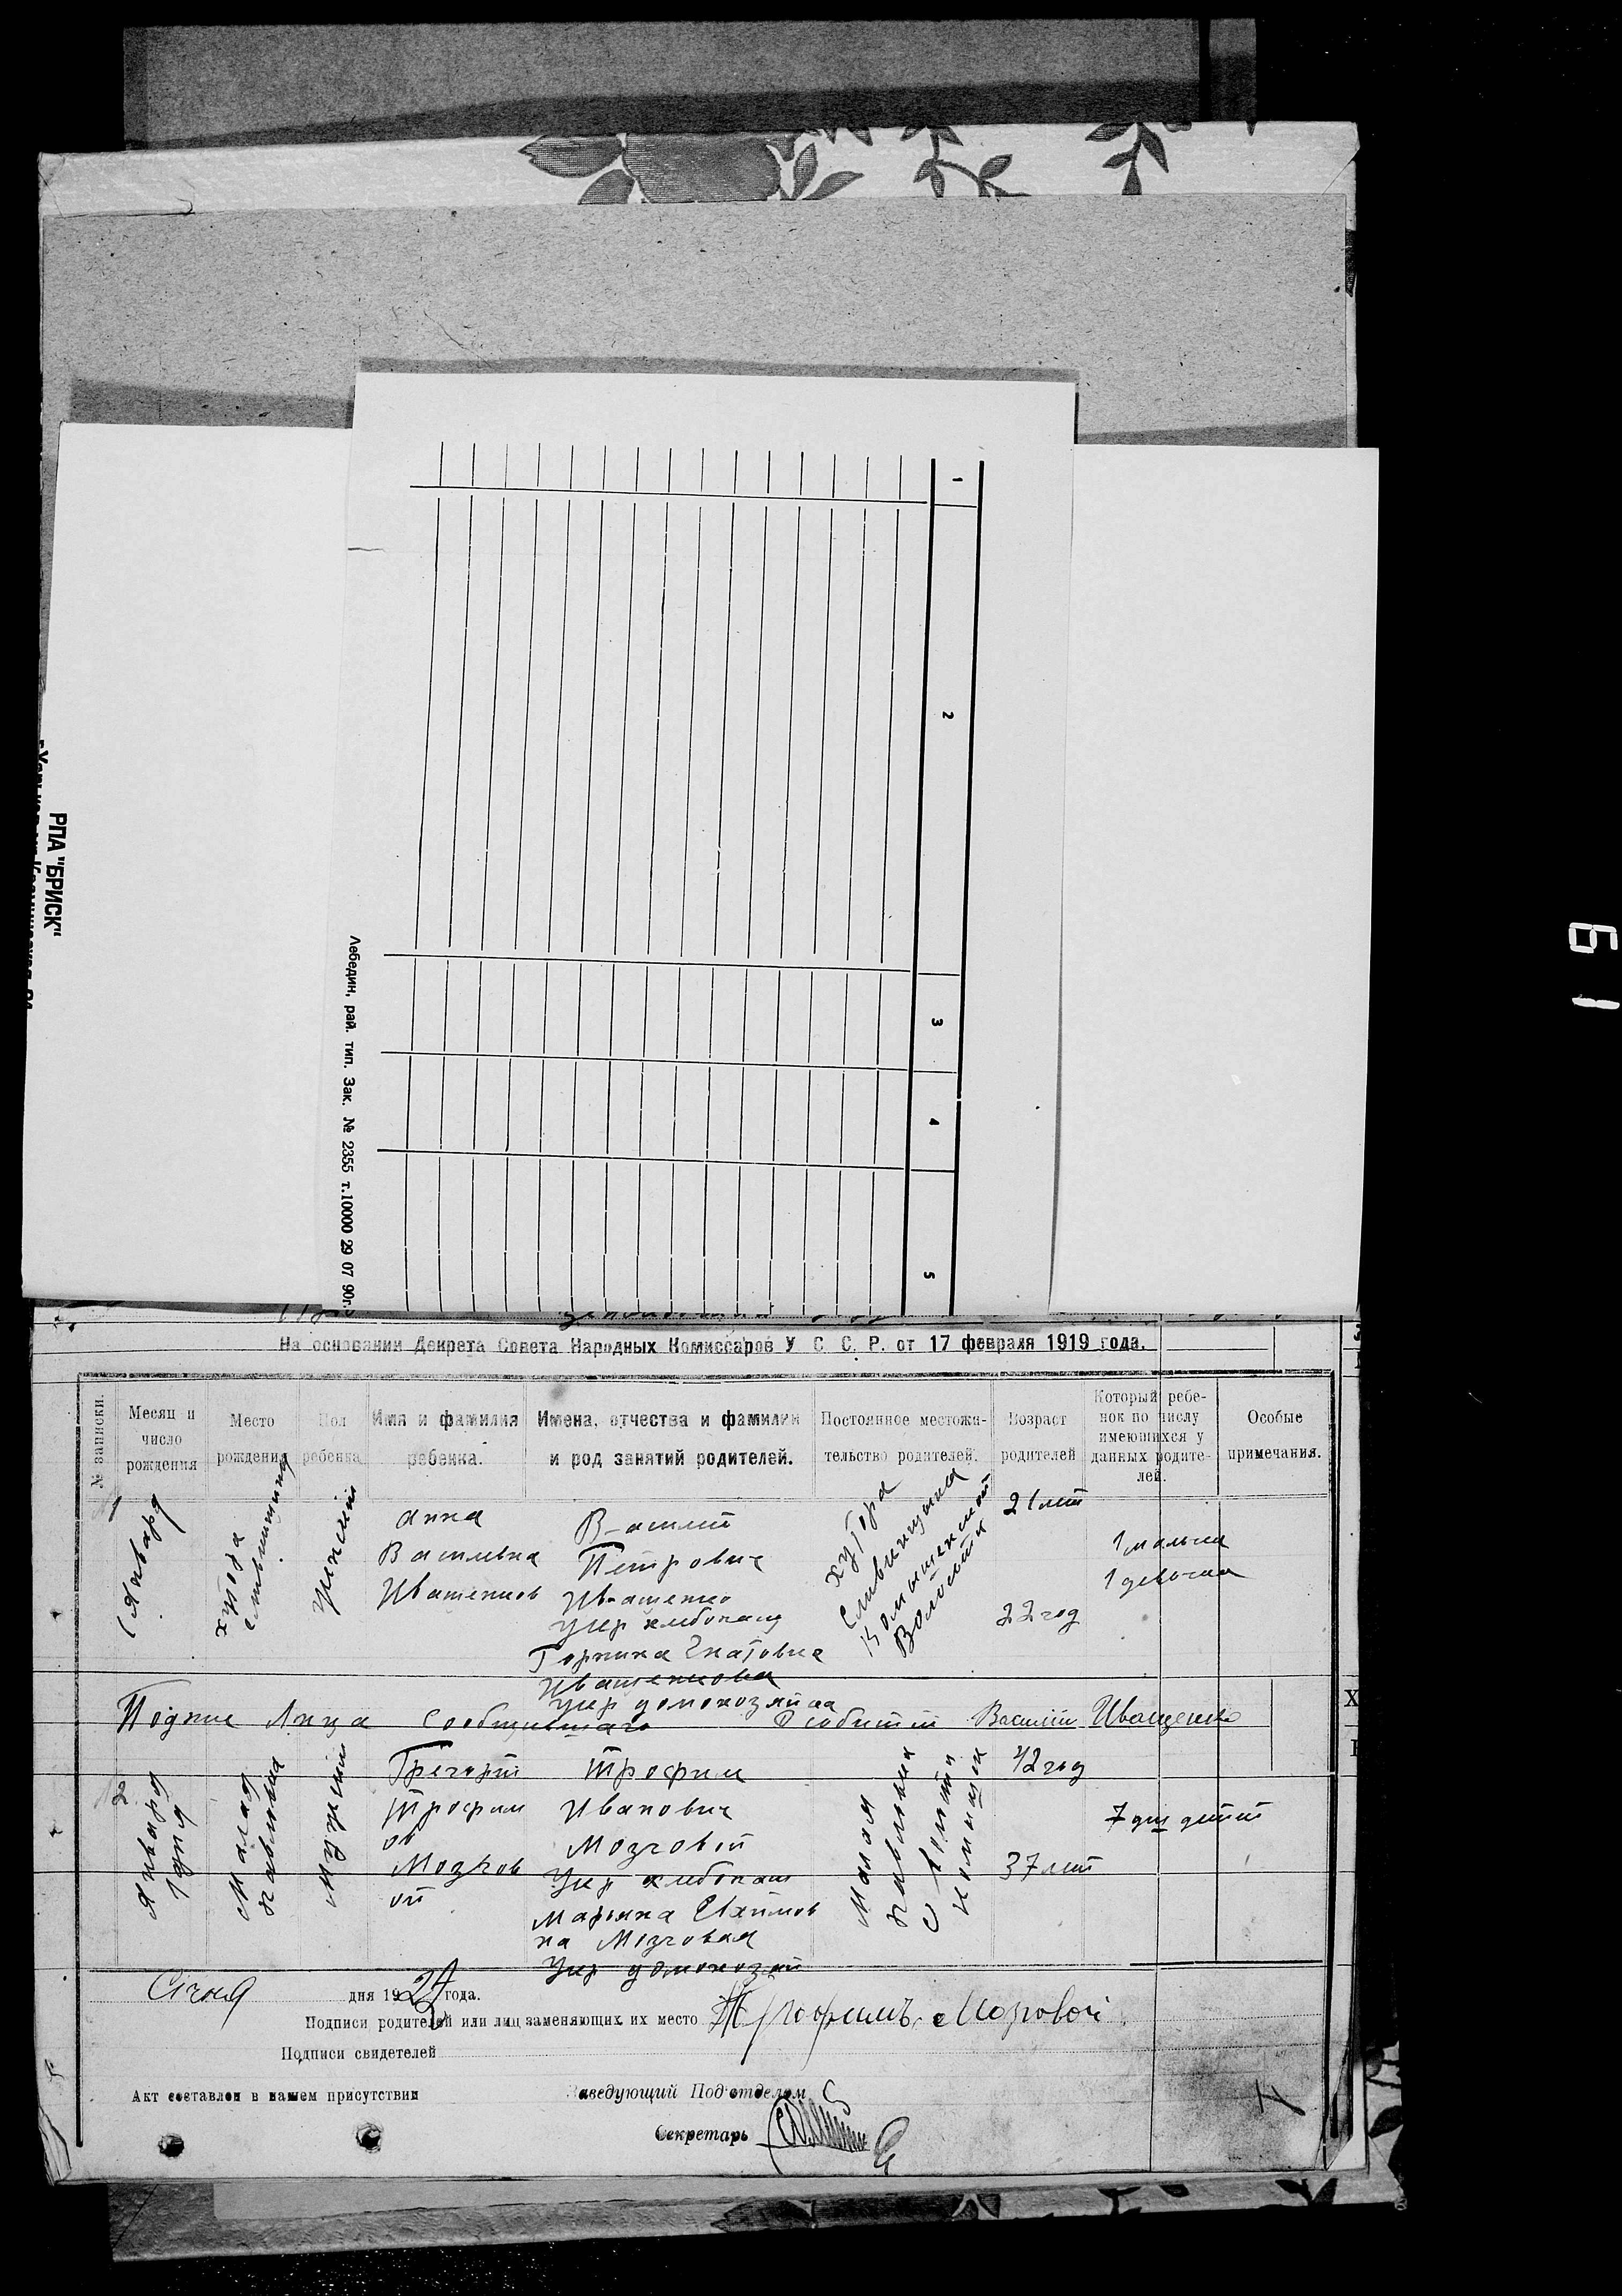 1
2
3
4
5
Лебедин, рай. тип. Зак. № 2355 т.10000 29 07 90г.
РПА "БРИСК"
61
На основании Декрета Совета Народных Комиссаров У С. С. Р. от 17 февраля 1919 года.
№ записки.
Месяц и
число
рождения
Место
рождения
Пол
ребенка
Имя и фамилия
ребенка.
Имена, отчества и фамилии
и род занятий родителей.
Постоянное местожи-
тельство родителей.
Возраст
родителей
Который ребе-
нок по числу
имеющихся у
данных родите-
лей.
Особые
примечания.
1
1 Января
хутора
женский
Анна
Васильевна
Иващенков
Василий
Петрович
Иващенко
укр хлебопащ
Горпина Игнатовна
Иващенкова
укр домохозяйка
хутора
Волости
21 лет
22 год
1 мальч
1 девочка
Подпис Лица Сообщившаго О событии Василий Иващенко
2
Января
1 дня
Малая
Павловка
Мужский
Григорий
Трофим
ов
Мозгов
ой
Трофим
Иванович
Мозговой
Укр хлебопаш
Марьяна
на Мозговая
Укр домохозяй
Малая
Павловка
42 год
37 лет
7 детей
Січня дня 192 года.
Подписи родителей или лиц заменяющих их место Трофимъ Мозовой
Подписи свидетелей
Акт составлен в нашем присутствии
Заведующий Под'отделом
Секретарь